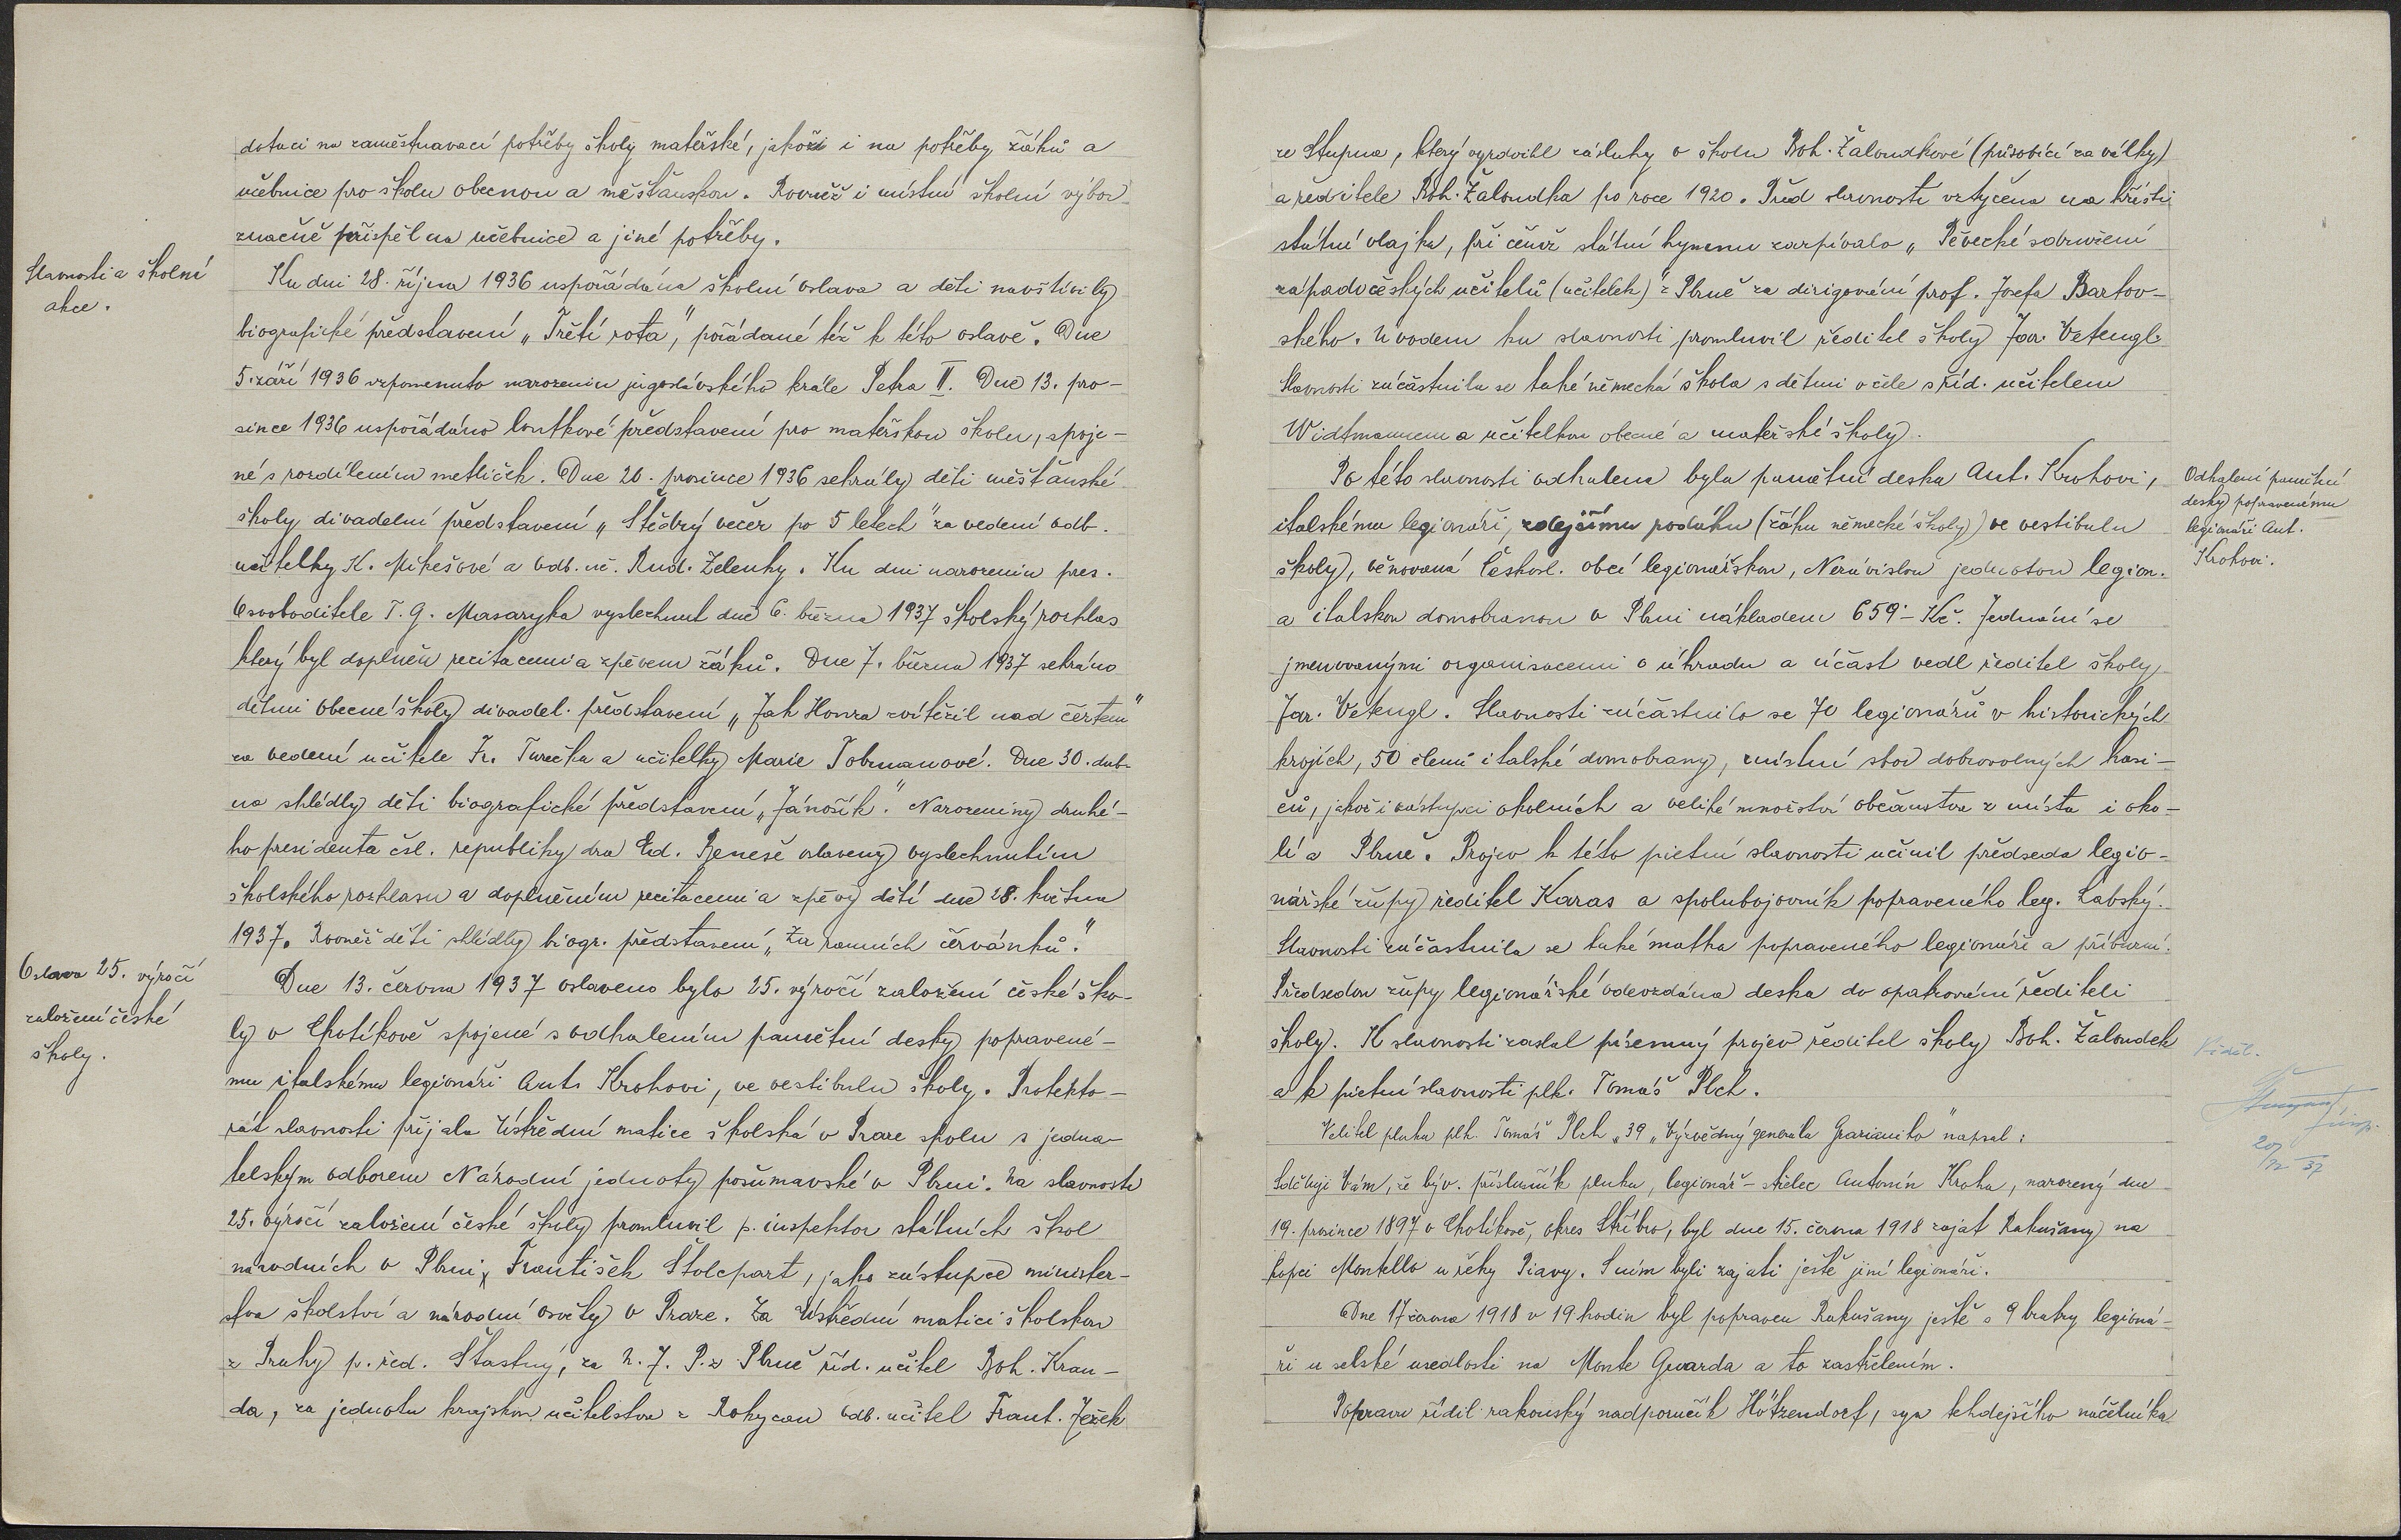 dotaci na zaměstnavací potřeby školy mateřské, jakož i na potřeby žáků a
učebnice pro školu obecnou a měšťanskou. Rovněž i místní školní výbor
značně přispěl na učebnice a jiné potřeby.
Slavnosti a školní
akce.
Ku dni 28. října 1936 uspořádána školní oslava a děti navštívily
biografické představení „Třetí rota", pořádané též k této oslavě. Dne
5. září 1936 vzpomenuto narozenin jugoslávského krále Petra II. Dne 13. pro-
since 1936 uspořádáno loutkové představení pro mateřskou školu, spoje-
né s rozdílením metliček. Dne 20. prosince 1936 sehrály děti měšťanské
školy divadelní představení „Štědrý večer po 5 letech" za vedení odb.
učitelky K. Mikešové a odb. uč. Rud. Zelenky. Ku dni narozenin pres.
Osvoboditele T. G. Masaryka vyslechnut dne 6. března 1937 školský rozhlas
který byl doplněn recitacemi a zpěvem žáků. Dne 7. března 1937 sehráno
dětmi obecné školy divadel. představení „Jak Honza zvítězil nad čertem"
za vedení učitele Fr. Turečka a učitelky Marie Tobrmanové. Dne 30. dub-
na shlédly děti biografické představení „Jánošík". Narozeniny druhé-
ho presidenta čsl. republiky dra Ed. Beneše oslaveny vyslechnutím
školského rozhlasu a doplněním recitacemi a zpěvy dětí dne 28. května
1937. Rovněž děti shlédly biogr. představení „Za ranních červánků."
Oslava 25. výročí
založení české
školy.
Dne 13. června 1937 oslaveno bylo 25. výročí založení české ško-
ly v Chotíkově spojené s odhalením pamětní desky popravené-
mu italskému legionáři Ant. Krohovi, ve vestibulu školy. Protekto-
rát slavnosti přijala Ústřední matice školská v Praze spolu s jedna-
telským odborem Národní jednoty pošumavské v Plzni. Na slavnosti
25. výročí založení české školy promluvil p. inspektor státních škol
národních v Plzni, František Štolcpart, jako zástupce minister-
stva školství a národní osvěty v Praze. Za Ústřední matici školskou
z Prahy p. řed. Šťastný, za N. J. P. z Plzně říd. učitel Boh. Kran-
da, za jednotu krajskou učitelstva z Rokycan odb. učitel Frant. Ježek
ze Stupna, který vyzdvihl zásluhy o školu Boh. Žaloudkové (působící za války)
a ředitele Boh. Žaloudka po roce 1920. Před slavností vztyčena na hřišti
státní vlajka, při čemž státní hymnu zazpívalo „Pěvecké sdružení
západočeských učitelů (učitelek) z Plzně za dirigování prof. Josefa Bartov-
ského. Úvodem ku slavnosti promluvil ředitel školy Jar. Vetengl.
Slavnosti zúčastnila se také německá škola s dětmi v čele s říd. učitelem
Widtmannem a učitelkou obecné a mateřské školy.
Odhalení pamětní
desky popravenému
legionáři Ant.
Krohovi.
Po této slavnosti odhalena byla pamětní deska Ant. Krohovi,
italskému legionáři, zdejšímu rodáku (žáku německé školy) ve vestibulu
školy, věnovaná Českosl. obcí legionářskou, Nezávislou jednotou legion.
a italskou domobranou v Plzni nákladem 659·- Kč. Jednání se
jmenovanými organisacemi o úhradu a účast vedl ředitel školy
Jar. Vetengl. Slavnosti zúčastnilo se 70 legionářů v historických
krojích, 50 členů italské domobrany, místní sbor dobrovolných hasi-
čů, jakož i zástupci okolních a veliké množství občanstva z místa i oko-
lí a Plzně. Projev k této pietní slavnosti učinil předseda legio-
nářské župy ředitel Karas a spolubojovník popraveného leg. Labský.
Slavnosti zúčastnila se také matka popraveného legionáře a příbuzní.
Předsedou župy legionářské odevzdána deska do opatrování řediteli
školy. K slavnosti zaslal písemný projev ředitel školy Boh. Žaloudek
a k pietní slavnosti plk. Tomáš Plch.
Viděl.
20/12 37
Velitel pluku plk. Tomáš Plch „39 „Výzvědný generála Grazianiho" napsal:
Sděluji Vám, že býv. příslušník pluku, legionář - střelec Antonín Kroha, narozený dne
19. prosince 1897 v Chotíkově, okres Stříbro, byl dne 15. června 1918 zajat Rakušany na
kopci Montello u řeky Piavy. S ním byli zajati ještě jiní legionáři.
Dne 17 června 1918 v 19 hodin byl popraven Rakušany ještě s 9 bratry legioná-
ři u selské usedlosti na Monte Gwarda a to zastřelením.
Popravu řídil rakouský nadporučík Hötzendorf, syn tehdejšího náčelníka